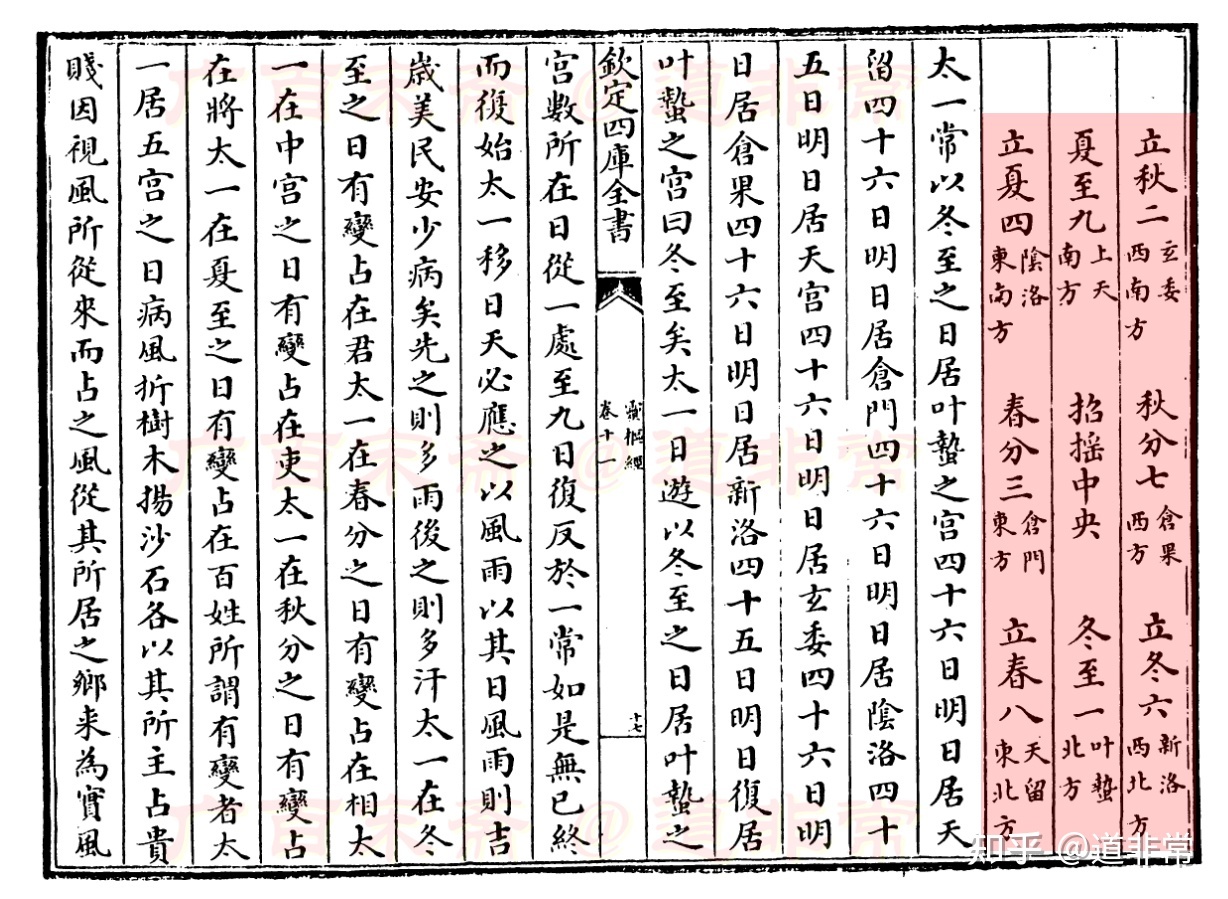 立秋二 玄委 西南方 秋分七 倉果 西方 立冬六 新洛 西北方
夏至九 上天 南方 招搖中央 冬至一 叶蟄 北方
立夏四 陰洛 東南方 春分三 倉門 東方 立春八 天留 東北方
太一常以冬至之日居叶蟄之宫四十六日明日居天
留四十六日明日居倉門四十六日明日居陰洛四十
五日明日居天宫四十六日明日居玄委四十六日明
日居倉果四十六日明日居新洛四十五日明日復居
叶蟄之宫曰冬至矣太一日遊以冬至之日居叶蟄之
欽定四庫全書 靈樞經 卷十一 十七
宫數所在日從一處至九日復反於一常如是無已終
而復始太一移日天必應之以風雨以其日風雨則吉
歲美民安少病矣先之則多雨後之則多汗太一在冬
至之日有變占在君太一在春分之日有變占在相太
一在中宫之日有變占在吏太一在秋分之日有變占
在將太一在夏至之日有變占在百姓所謂有變者太
一居五宫之日病風折樹木揚沙石各以其所主占貴
賤因視風所從來而占之風從其所居之鄉来為實風
知乎 @道非常